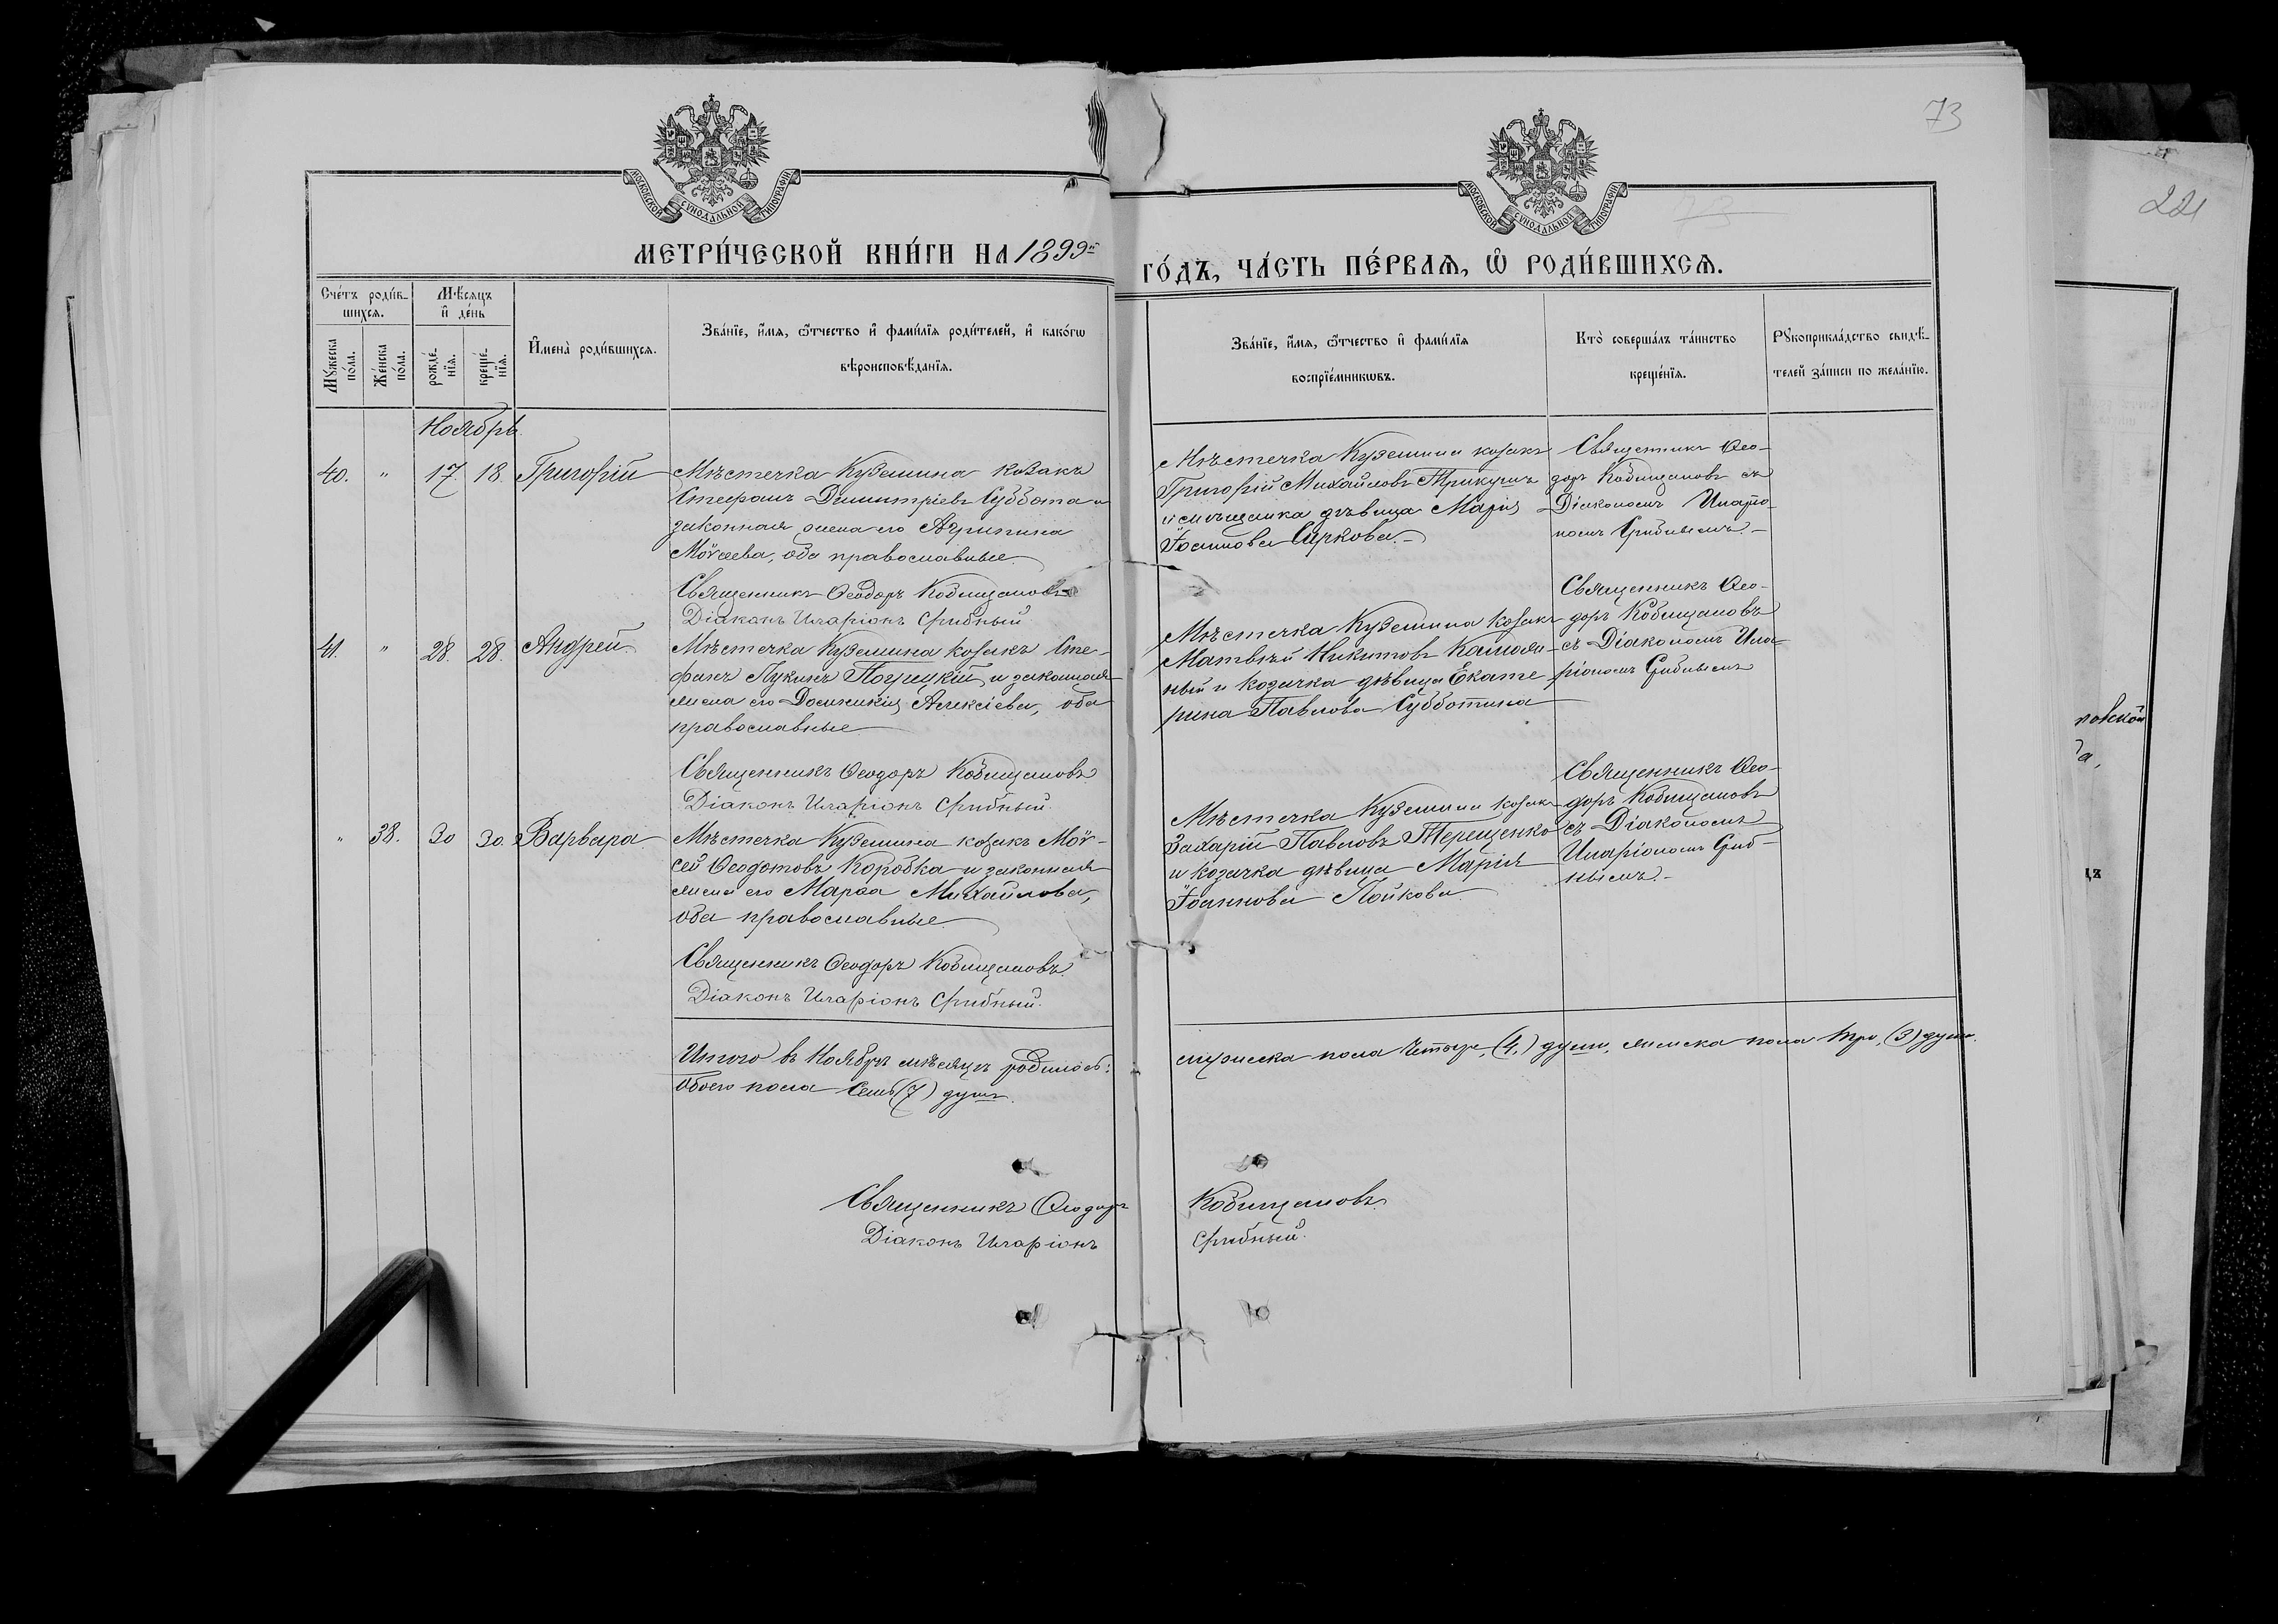 73
МОСКОВСКОЙ СУНОДАЛЬНОЙ ТИПОГРАФІИ
МОСКОВСКОЙ СУНОДАЛЬНОЙ ТИПОГРАФІИ
221
МЕТРИ́ЧЕСКОЙ КНИ́ГИ НА 1899й
ГО́ДЪ, ЧА́СТЬ ПЕ́РВАѦ, Ѡ҆ РОДИ́ВШИХСѦ.
Сче́тъ роди́в-
шихсѧ.
Мꙋ́жеска по́ла.
Же́нска по́ла.
Мѣ́сѧцъ
и҆ де́нь
рожде́-
нїѧ.
креще́-
нїѧ.
И҆мена̀ роди́вшихсѧ.
Зва́нїе, и҆́мѧ, ѻ҆́тчество и҆ фами́лїѧ роди́телей, и҆ како́гѡ
вѣроисповѣ́данїѧ.
Зва́нїе, и҆́мѧ, ѻ҆́тчество и҆ фами́лїѧ
воспрїе́мникѡвъ.
Кто̀ соверша́лъ та́инство
креще́нїѧ.
Рꙋкоприкла́дство свидѣ́-
телей за́писи по жела́нїю.
Ноябрь
40. " 17. 18. Григорій
Мѣстечка Куземина козакъ
Стефанъ Димитріевъ Суббота и
законная жена его Агрипина
Моѵсеева, оба православные
Священникъ Ѳеодоръ Кобищановъ
Діаконъ Иларіонъ Срибный
Мѣстечка Куземина козакъ
Григорій Михайловъ Трикушъ
и мѣщанка дѣвица Марія
Іоаннова Суркова.
Священникъ Ѳео-
доръ Кобищановъ съ
Діакономъ Иларіо-
номъ Срибнымъ.
41. " 28. 28. Андрей
Мѣстечка Куземина козакъ Сте-
фанъ Лукинъ и законная
жена его Домникія Алексіева, оба
православные
Священникъ Ѳеодоръ Кобищановъ
Діаконъ Иларіонъ Срибный.
Мѣстечка Куземина козакъ
Матвѣй Никитовъ
ный и козачка дѣвица Екате
рина Павлова Субботина
Священникъ Ѳео-
доръ Кобищановъ
съ Діакономъ Ила-
ріономъ Срибнымъ
" 38. 30 30. Варвара
Мѣстечка Куземина козакъ Моѵ-
сей Ѳеодотовъ Коробка и законная
жена его Марѳа Михайлова,
оба православные.
Священникъ Ѳеодоръ Кобищановъ
Діаконъ Иларіонъ Срибный.
Мѣстечка Куземина козакъ
Захарій Павловъ Терещенко
и козачка дѣвица Марія
Іоаннова Лойкова
Священникъ Ѳео-
доръ Кобищановъ
съ Діакономъ
Иларіономъ Сриб-
нымъ.
Итого въ Ноябрѣ мѣсяцѣ родилось:
мужеска пола Четыре, (4,) души, женска пола три, (3) души.
Обоего пола Семь (7) душъ.
Священникъ Ѳеодоръ Кобищановъ
Діаконъ Иларіонъ Срибный.